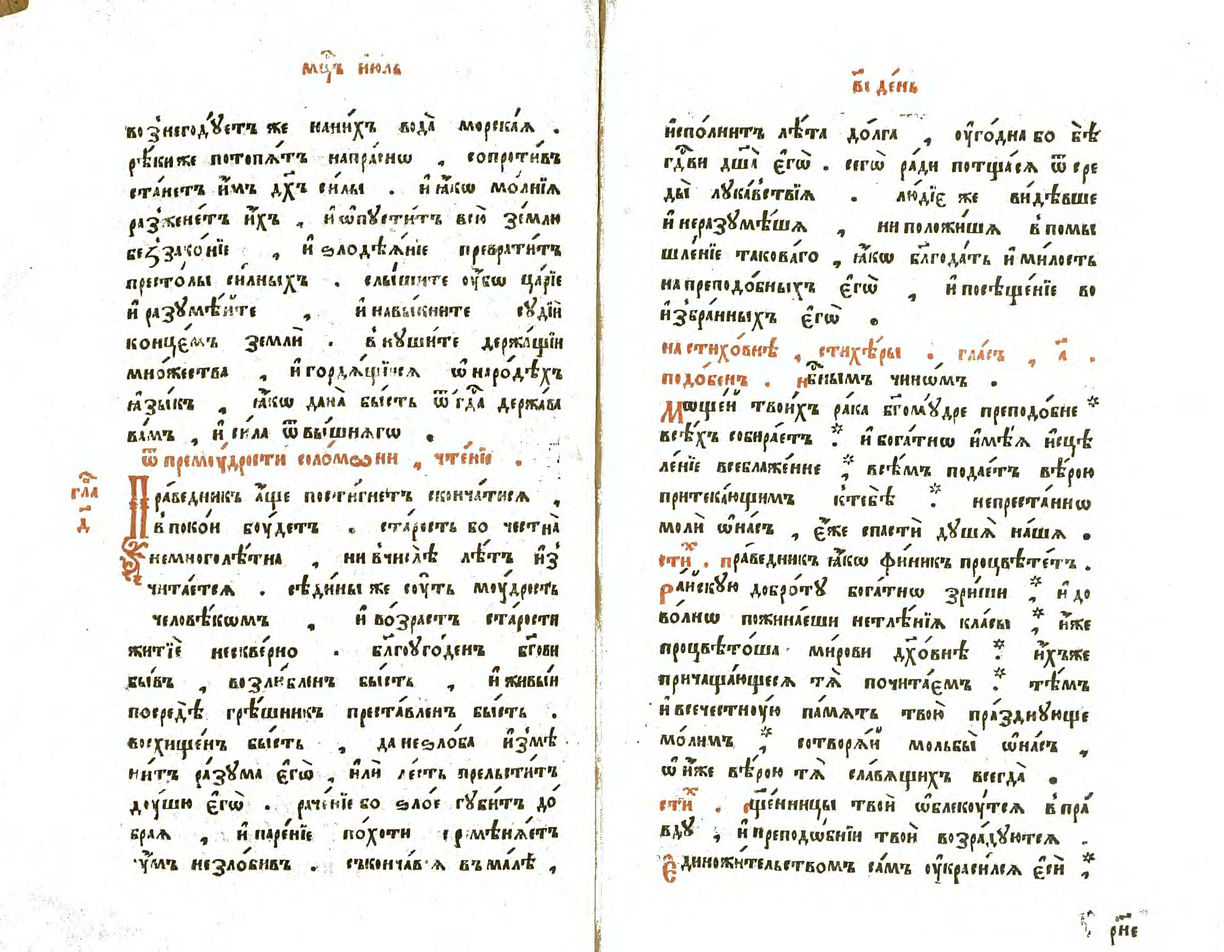 мц҃ъ ию́ль
вознегоду́етъ же нани́хъ вода̀ морска́ѧ .
рѣ́киже потопѧ́тъ напра́снѡ , сопроти́въ
ста́нетъ и҆̀мъ дх҃ъ си́лы . и҆ ꙗ҆́кѡ мо́лнїѧ
разжене́тъ и҆̀хъ , и҆ ѡ҆пꙋсти́тъ всю̀ зе́млю
беззако́нїе , и҆ ѕлодѣѧ́нїе преврати́тъ
престо́лы си́лныхъ . слы́шите ᲂу҆́бѡ ца́рїе
и҆ разꙋмѣ́йте , и҆ навы́кните сꙋдїи̑
конце́мъ земли̑ . внꙋши́те держа́щїи
мно́жества , и҆ гордѧ́щїисѧ ѡ҆ наро́дѣхъ
ꙗ҆зы́къ , ꙗ҆́кѡ дана̀ бы́сть ѿ гд҃а держа́ва
ва́мъ , и҆ си́ла ѿ вы́шнѧгѡ .
ѿ премᲂу́дрости соломѡ́ни , чте́нїе .
гла д҃
Пра́ведникъ а҆́ще пости́гнетъ сконча́тисѧ ,
в поко́и бᲂу́детъ . ста́рость бо честна̀
немноголѣ́тна , ни вчислѣ̀ лѣ́тъ и҆з
чита́етсѧ . сѣди́ны же сᲂу́ть мᲂу́дрость
человѣ́кѡмъ , и҆ во́зрастъ ста́рости
житїѐ нескве́рно . бл҃гᲂуго́денъ бг҃ови
бы́въ , возлю́бленъ бы́сть , и҆ живы́и
посредѣ̀ грѣ́шникъ преста́вленъ бы́сть .
восхище́нъ бы́сть , да не ѕло́ба и҆змѣ
ни́тъ ра́зꙋма є҆гѡ̀ , и҆лѝ ле́сть прельсти́тъ
дᲂу́шю є҆гѡ̀ . раче́нїе бо ѕло́е гꙋби́тъ до́
браѧ , и҆ паре́нїе по́хоти премѣнѧ́етъ
ᲂу҆́мъ неѕло́бивъ . съконча́всѧ въма́лѣ ,
в҃і де́нь
и҆спо́лнитъ лѣ́та до́лга , ᲂу҆го́дна бо бѣ̀
гд҃ви дш҃а̀ є҆гѡ̀ . сегѡ̀ ра́ди потща́сѧ ѿ сре
ды̀ лꙋка́вствїѧ . лю́дїе же ви́дѣвше
и҆ неразꙋмѣ́шѧ , ни положи́шѧ в помы
шле́нїе такова́го , ꙗ҆́кѡ бл҃года́ть и҆ ми́лость
на преподо́бныхъ є҆гѡ̀ , и҆ посѣще́нїе во
и҆збра́нныхъ є҆гѡ̀ .
на стихо́внѣ , стихѣ́ры . гла́съ , а҃ .
подо́бенъ . нбⷭ҇нымъ чинѡ́мъ .
Моще́й твои́хъ ра́ка бг҃омꙋ́дре преподо́бне *
всѣ́хъ собира́етъ * и҆ бога́тнѡ и҆мѣ́ѧ и҆сцѣ
ле́нїе всеблаже́ние * всѣ́мъ подае́тъ вѣ́рою
притека́ющимъ ктебѣ̀ * непреста́ннѡ
молѝ ѡ҆на́съ , є҆́же спастѝ дꙋшѧ̀ на́шѧ .
сти́х . пра́ведникъ ꙗ҆́кѡ фи́никъ процвѣте́тъ .
Ра́йскꙋю добро́тꙋ бога́тнѡ зри́ши * и҆ до
во́лнѡ пожина́еши нетлѣ́нїѧ кла́сы * и҆̀же
процвѣто́ша ми́рови дх҃о́внѣ * и҆́хъже
причаща́ющесѧ тѧ̀ почита́емъ * тѣ́мъ
и҆ всечестнᲂу́ю па́мѧть твою̀ пра́зднꙋюще
мо́лимъ * сотворѧ́й мольбы̀ ѡ҆на́съ ,
ѡ҆ и҆̀же вѣ́рою тѧ̀ сла́вѧщихъ всегда̀ .
сти́х . сщ҃е́нницы твоѝ ѡ҆блекᲂу́тсѧ в пра́
вдꙋ , и҆ преподѡ́бнїи твоѝ возра́дꙋютсѧ .
Є҆диножи́тельствомъ са́мъ ᲂу҆краси́лсѧ є҆сѝ *
рн҃е